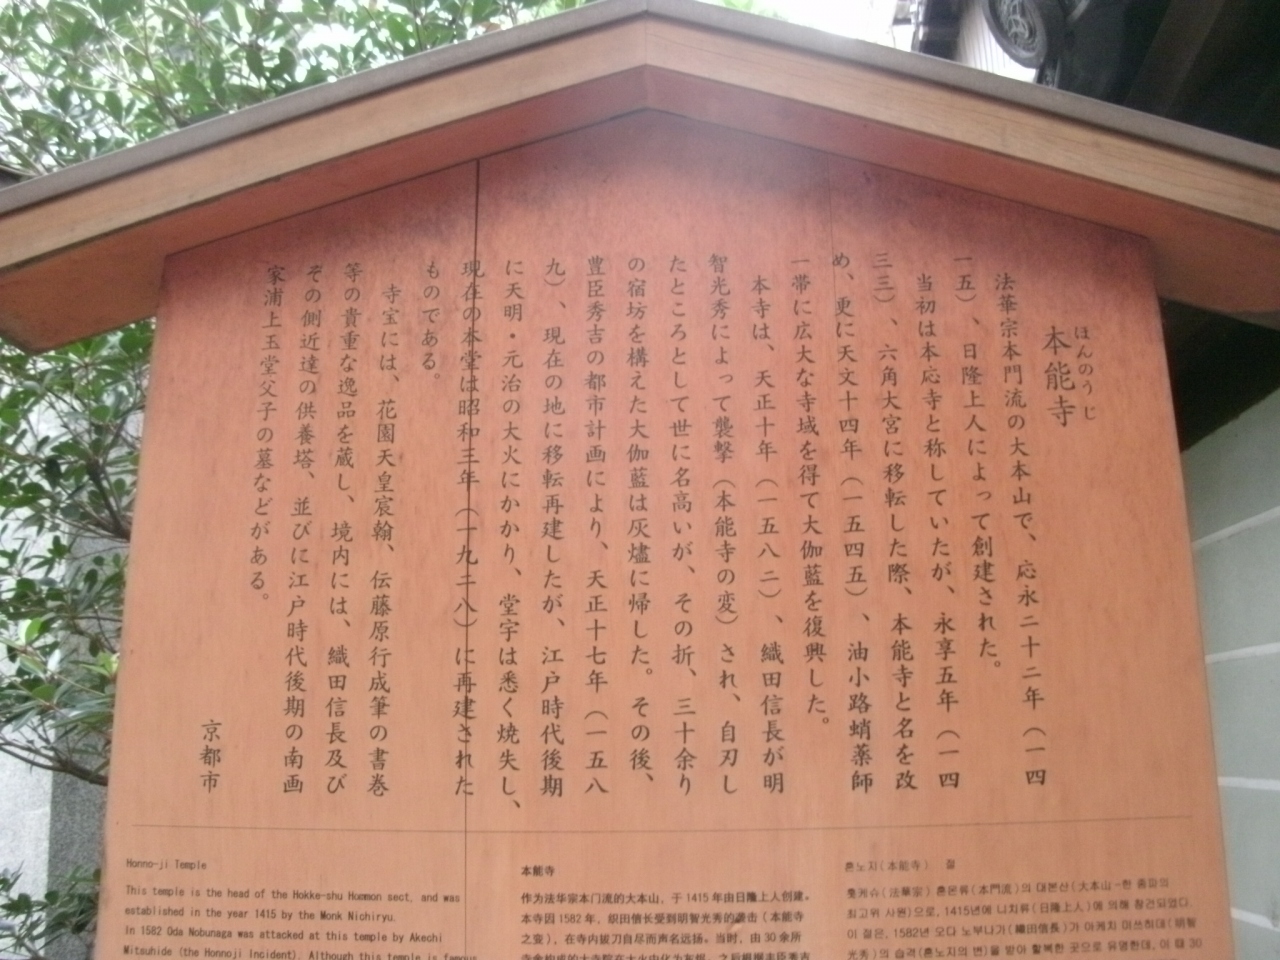 ほんのうじ
本能寺
法華宗本門流の大本山で、応永二十二年（一四
一五）、日隆上人によって創建された。
当初は本応寺と称していたが、永享五年（一四
三三）、六角大宮に移転した際、本能寺と名を改
め、更に天文十四年（一五四五）、油小路蛸薬師
一帯に広大な寺域を得て大伽藍を復興した。
本寺は、天正十年（一五八二）、織田信長が明
智光秀によって襲撃（本能寺の変）され、自刃し
たところとして世に名高いが、その折、三十余り
の宿坊を構えた大伽藍は灰燼に帰した。その後、
豊臣秀吉の都市計画により、天正十七年（一五八
九）、現在の地に移転再建したが、江戸時代後期
に天明・元治の大火にかかり、堂宇は悉く焼失し、
現在の本堂は昭和三年（一九二八）に再建された
ものである。
寺宝には、花園天皇宸翰、伝藤原行成筆の書巻
等の貴重な逸品を蔵し、境内には、織田信長及び
その側近達の供養塔、並びに江戸時代後期の南画
家浦上玉堂父子の墓などがある。
京都市
Honno-ji Temple
This temple is the head of the Hokke-shu Honmon sect, and was
established in the year 1415 by the Monk Nichiryu.
In 1582 Oda Nobunaga was attacked at this temple by Akechi
Mitsuhide (the Honnoji Incident). Although this temple is famous
本能寺
作为法华宗本门流的大本山，于1415年由日隆上人创建。
本寺因1582年，织田信长受到明智光秀的袭击（本能寺
之变），在寺内拔刀自尽而声名远扬。当时，由30余所
혼노지(本能寺) 절
홋케슈(法華宗) 혼몬류(本門流)의 대본산(大本山-한 종파의
최고위 사원)으로, 1415년에 니치류(日隆上人)에 의해 창건되었다.
이 절은, 1582년 오다 노부나가(織田信長)가 아케치 미쓰히데(明智
光秀)의 습격(혼노지의 변)을 받아 할복한 곳으로 유명한데, 이 때 30